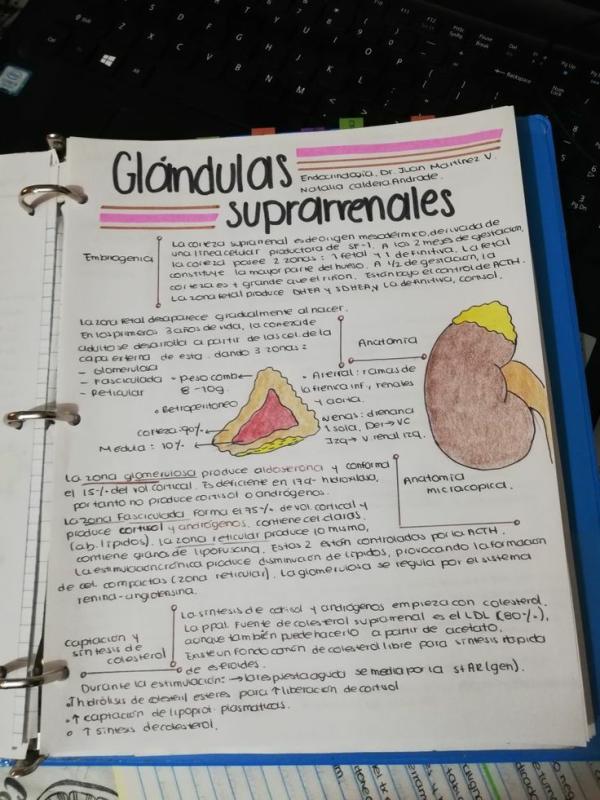 Glándulas
suprarrenales
Endocrinología. Dr. Juan Martínez V.
Natalia Caldera Andrade.
Embriogenia
La corteza suprarrenal es de origen mesodérmico, derivada de
una línea celular productora de SF-1. A los 2 meses de gestación,
la corteza posee 2 zonas: 1 fetal y 1 definitiva. La fetal
constituye la mayor parte del A 1/2 de gestación, la
corteza es + grande que el riñon. Están bajo el control de ACTH.
La zona fetal produce DHEA y SDHEA, y la definitiva, cortisol.
La zona fetal desaparece gradualmente al nacer.
En los primeros 3 años de vida, la corteza de
adulto se desarrolla a partir de las cel. de la
capa externa de esta, dando 3 zonas:
- Glomerulosa
- Fasciculada
- Reticular
Anatomía
• Peso comb
8-10g.
• Retroperitoneo
corteza: 90%
Medula: 10%
• Arterial: ramas de
la frenica inf, renales
y aorta.
Venas: drenan a
1 sola. Der → VC
Izq → V. renal izq.
La zona glomerulosa produce aldosterona y conforma
el 15% del vol cortical. Es deficiente en 17α-hidroxilasa,
por tanto no produce cortisol o andrógenos.
La zona Fasciculada forma el 75% de vol cortical y
produce cortisol y andrógenos. contiene cel claras
(ab. lípidos). La zona reticular produce lo mismo,
contiene gránu. de lipofuscina. Estas 2 están controlados por la ACTH.
La estimulación crónica produce disminución de lípidos, provocando la formación
de cel. compactas (zona reticular). La glomerulosa se regula por el sistema
renina-angiotensina.
Anatomía
microscopica.
captación y
síntesis de
colesterol
La síntesis de cortisol y andrógenos empieza con colesterol.
La ppal. fuente de colesterol suprarrenal es el LDL (80%),
aunque también puede hacerlo a partir de acetato.
Existe un fondo común de colesterol libre para síntesis rápida
de esteroides.
Durante la estimulación: → la respuesta aguda se media por la StAR (gen).
• ↑ hidrólisis de colesteril esteres para ↑ liberación de cortisol
• ↑ captación de lipoprot. plasmáticas.
• ↑ síntesis de colesterol.